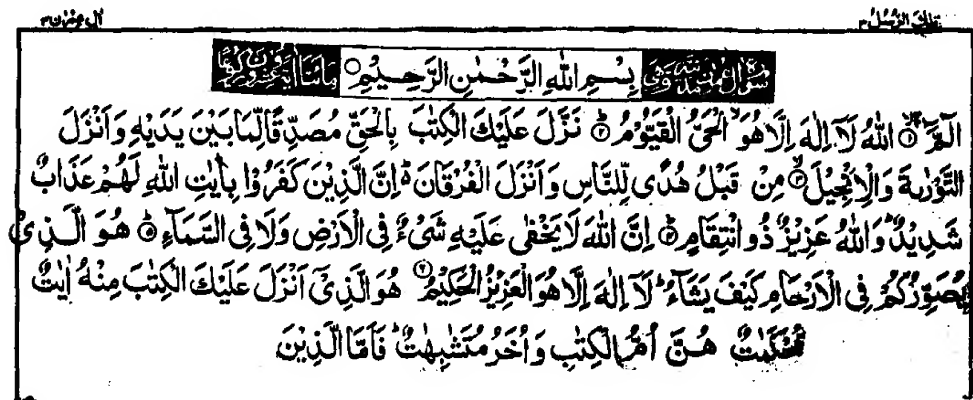 تلك الرسل ٣ آل عمرٰن ٣
بِسْمِ اللّٰهِ الرَّحْمٰنِ الرَّحِیْمِ
الٓمَّٓ ۙ﴿۱﴾ اللّٰهُ لَاۤ اِلٰهَ اِلَّا هُوَ ۙ الْحَیُّ الْقَیُّوْمُ ؕ﴿۲﴾ نَزَّلَ عَلَیْكَ الْكِتٰبَ بِالْحَقِّ مُصَدِّقًا لِّمَا بَیْنَ یَدَیْهِ وَاَنْزَلَ
التَّوْرٰىةَ وَالْاِنْجِیْلَ ۙ﴿۳﴾ مِنْ قَبْلُ هُدًی لِّلنَّاسِ وَاَنْزَلَ الْفُرْقَانَ ؕ اِنَّ الَّذِیْنَ كَفَرُوْا بِاٰیٰتِ اللّٰهِ لَهُمْ عَذَابٌ
شَدِیْدٌ ؕ وَاللّٰهُ عَزِیْزٌ ذُو انْتِقَامٍ ﴿۴﴾ اِنَّ اللّٰهَ لَا یَخْفٰی عَلَیْهِ شَیْءٌ فِی الْاَرْضِ وَلَا فِی السَّمَآءِ ؕ﴿۵﴾ هُوَ الَّذِیْ
یُصَوِّرُكُمْ فِی الْاَرْحَامِ كَیْفَ یَشَآءُ ؕ لَاۤ اِلٰهَ اِلَّا هُوَ الْعَزِیْزُ الْحَكِیْمُ ﴿۶﴾ هُوَ الَّذِیْۤ اَنْزَلَ عَلَیْكَ الْكِتٰبَ مِنْهُ اٰیٰتٌ
مُّحْكَمٰتٌ هُنَّ اُمُّ الْكِتٰبِ وَاُخَرُ مُتَشٰبِهٰتٌ ؕ فَاَمَّا الَّذِیْنَ